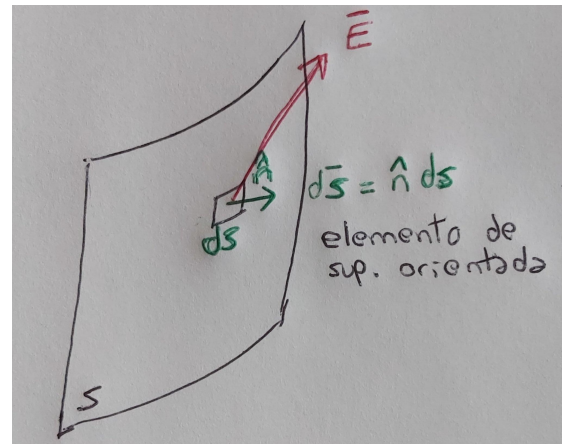 Ē
n̂
d̄s = n̂ ds
ds
elemento de
sup. orientada
S